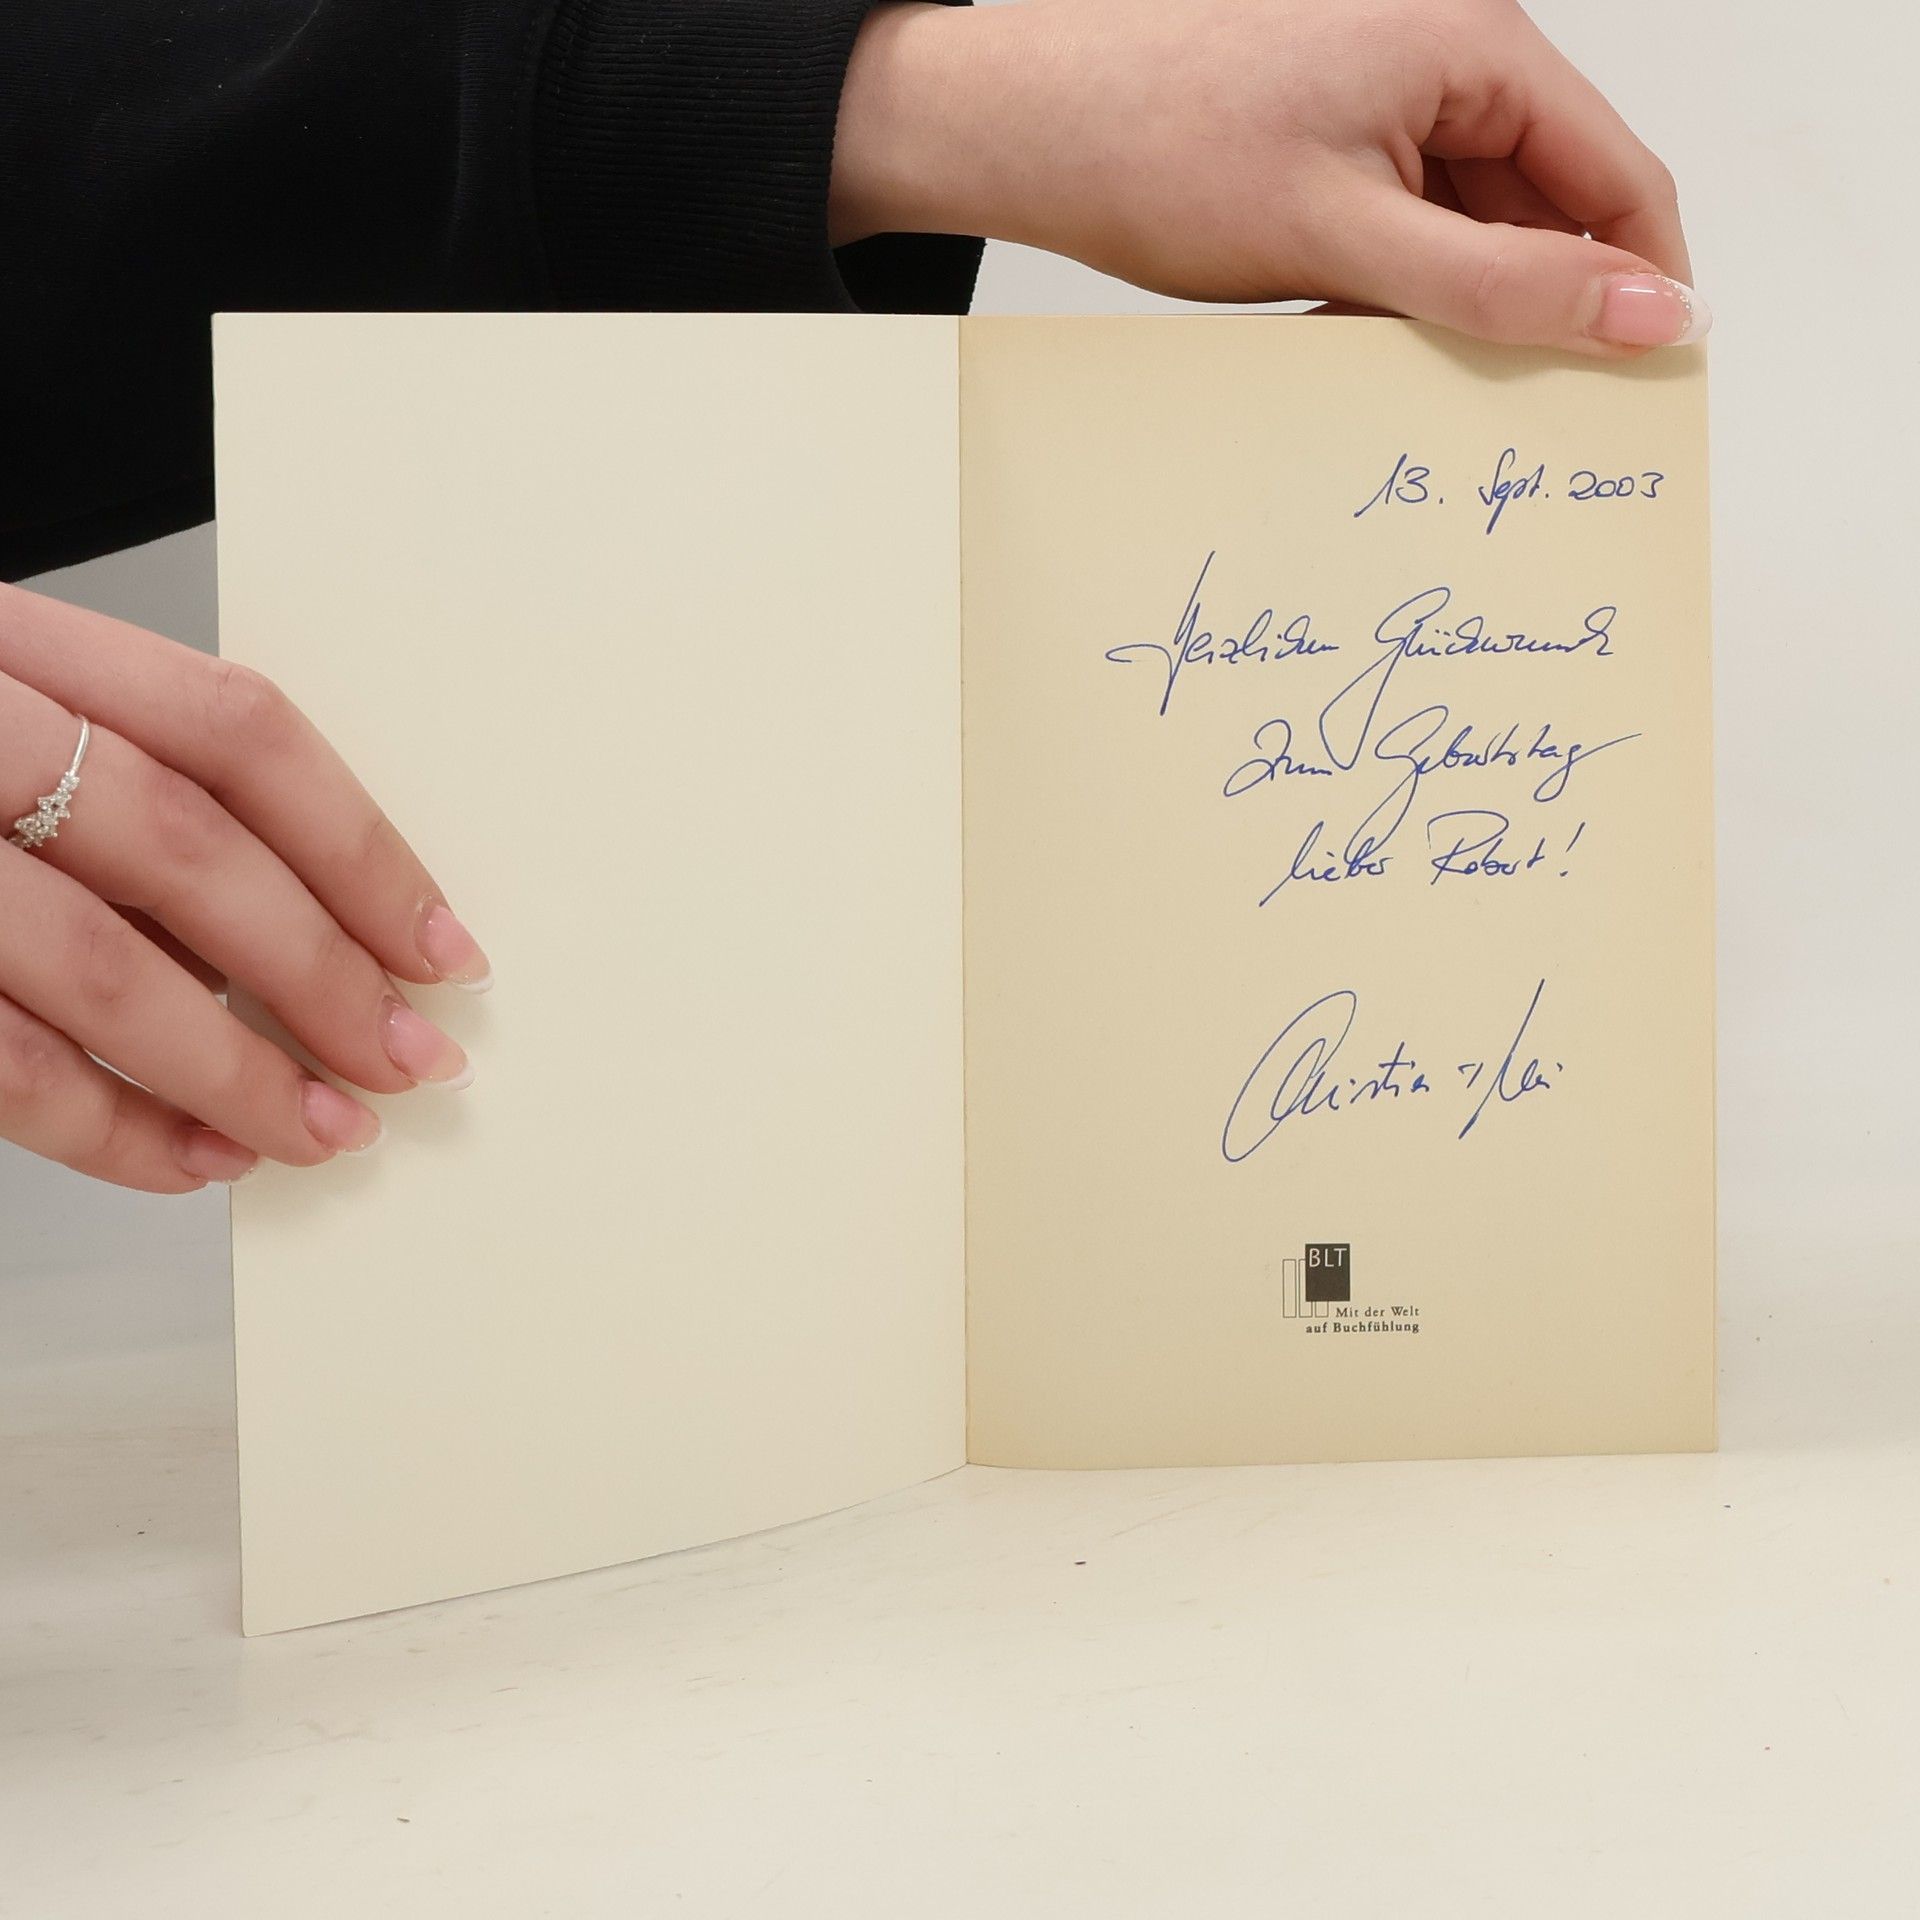 13. Sept. 2003
Herzlichen Glückwunsch
zum Geburtstag
lieber Robert!
Christian
BLT
Mit der Welt
auf Buchfühlung